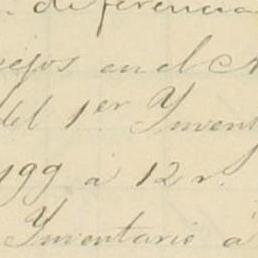 de ferencia
ejos en el
del 1er Ynvent
199 á 12 r.
Ynventario á